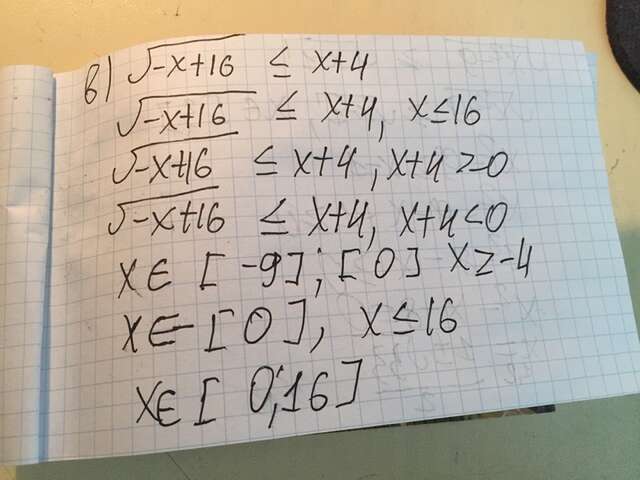 в) √-x+16 ≤ x+4
√-x+16 ≤ x+4, x≤16
√-x+16 ≤ x+4, x+4≥0
√-x+16 ≤ x+4, x+4<0
x∈[-9];[0] x≥-4
x∈-[0], x≤16
x∈[0;16]